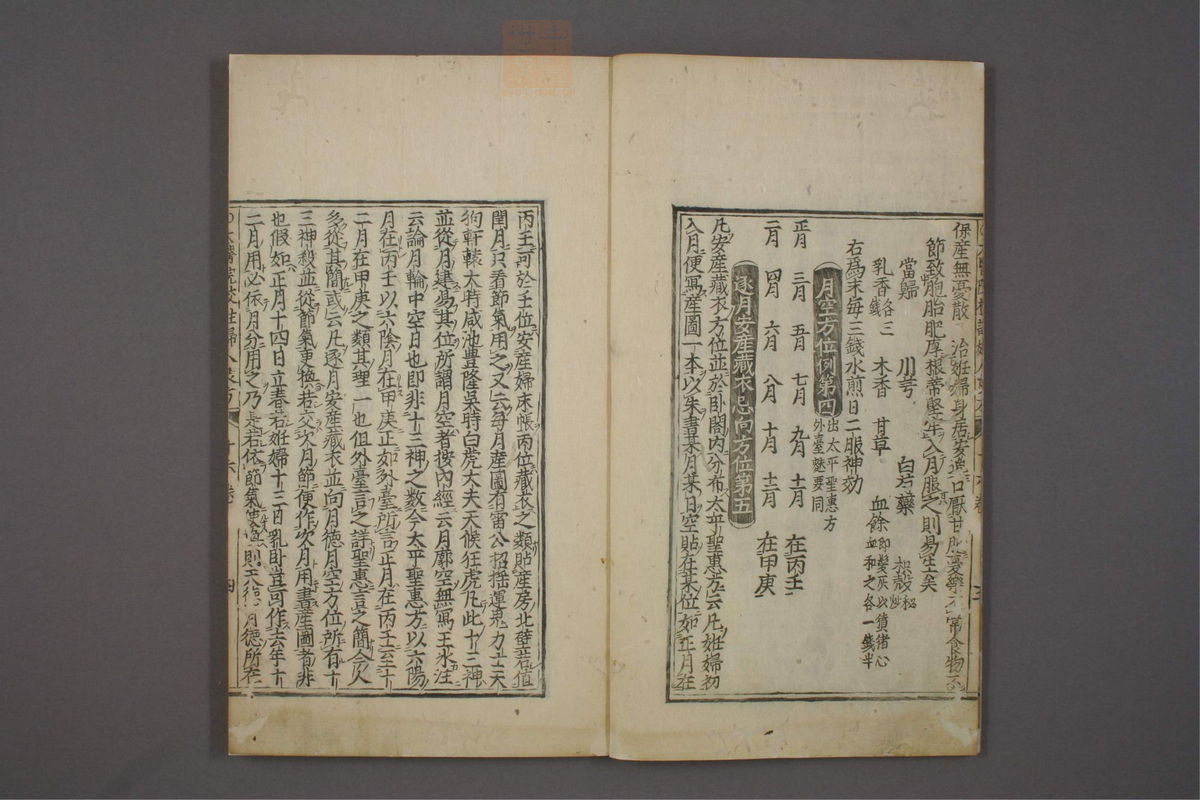 保産無憂散 治姙婦身居安逸口厭甘肥憂樂不常食物不
節致胞胎肥厚根蒂堅牢入月服之則易生矣
當歸 川芎 白芍藥 枳殼
乳香各三錢 木香 甘草 血餘即髮灰以豶猪心血和之各一錢半
右爲末每三錢水煎日二服神効
月空方位例第四 出太平聖惠方外臺䰟要同
正月 三月 五月 七月 九月 十一月 在丙壬
二月 四月 六月 八月 十月 十二月 在甲庚
逐月安産藏衣忌向方位第五
凡安産藏衣方位並於卧閣内分布太平聖惠方云凡姙婦初
入月便寫産圖一本以朱書某月某日空貼在某位如正月在
丙壬可於壬位安産婦床帳丙位藏衣之類貼産房北壁若值
閏月只看節氣用之又云每月産圖有雷公招搖運鬼力士天
狗軒轅大時咸池豊隆吳時白虎大夫天候狂虎凡此十三神
並從月建易其位所謂月空者按内經云月廓空無寫王氷注
云論月輪中空日也即非十三神之數今太平聖惠方以六陽
月在丙壬以六陰月在甲庚正如外臺所言正月在丙壬云云
二月在甲庚之類其理一也但外臺言之詳聖惠言之簡今人
多從其簡或云凡逐月安産藏衣並向月德月空方位所有十
三神殺並從節氣更換若交次月節便作次月用書産圖者非
也假如正月十四日立春若姙婦十三日乳卧豈可作去年十
二月用必依月分用之乃是若依節氣則天德月德所在
太醫院校註婦人良方 十六卷 四